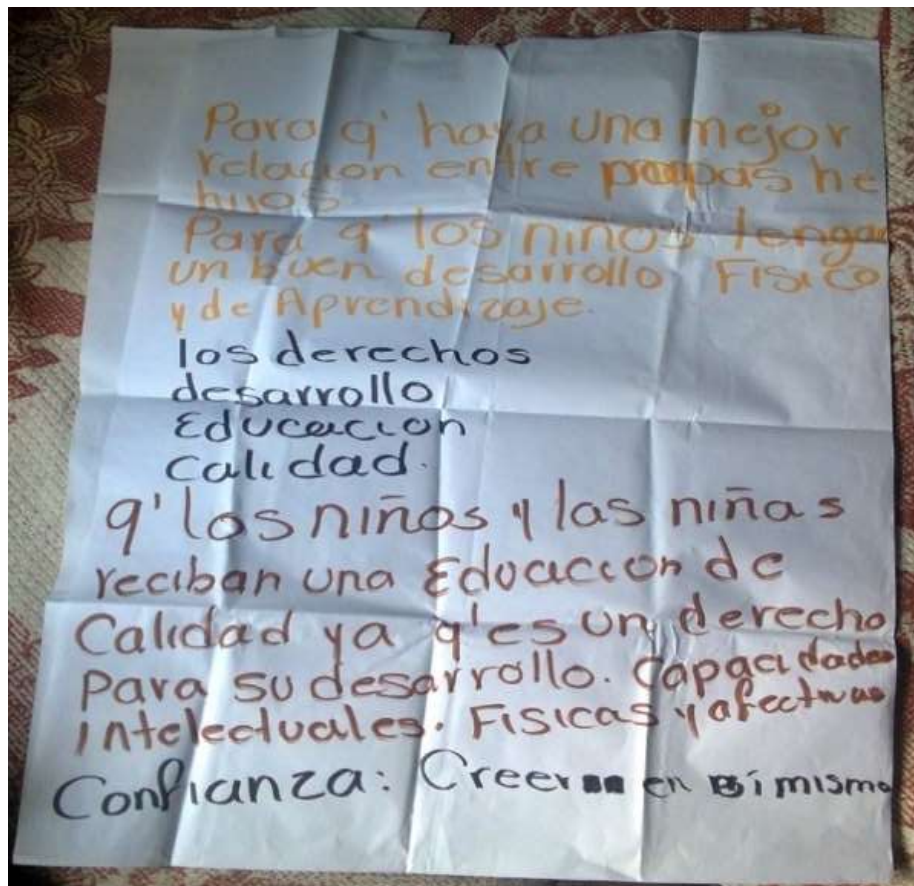 Para q' haya una mejor
relacion entre papas he
hijos
Para q' los niños tengan
un buen desarrollo Fisico
y de Aprendizaje.
los derechos
desarrollo
Educacion
Calidad.
q' los niños y las niñas
reciban una Educacion de
Calidad ya q'es un derecho
Para su desarrollo. Capacidades
intelectuales. Fisicas y afectivas
Confianza: Creer en sí mismo